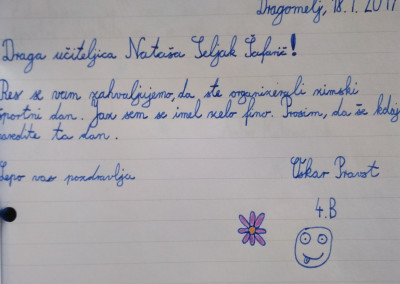 Dragomelj, 18. 1. 2017
Draga učiteljica Nataša Seljak Šafarič!
Res se vam zahvaljujemo, da ste organizirali zimski
športni dan. Jaz sem se imel zelo fino. Prosim, da še kdaj
naredite ta dan.
Lepo vas pozdravlja
Oskar Pravst
4. B